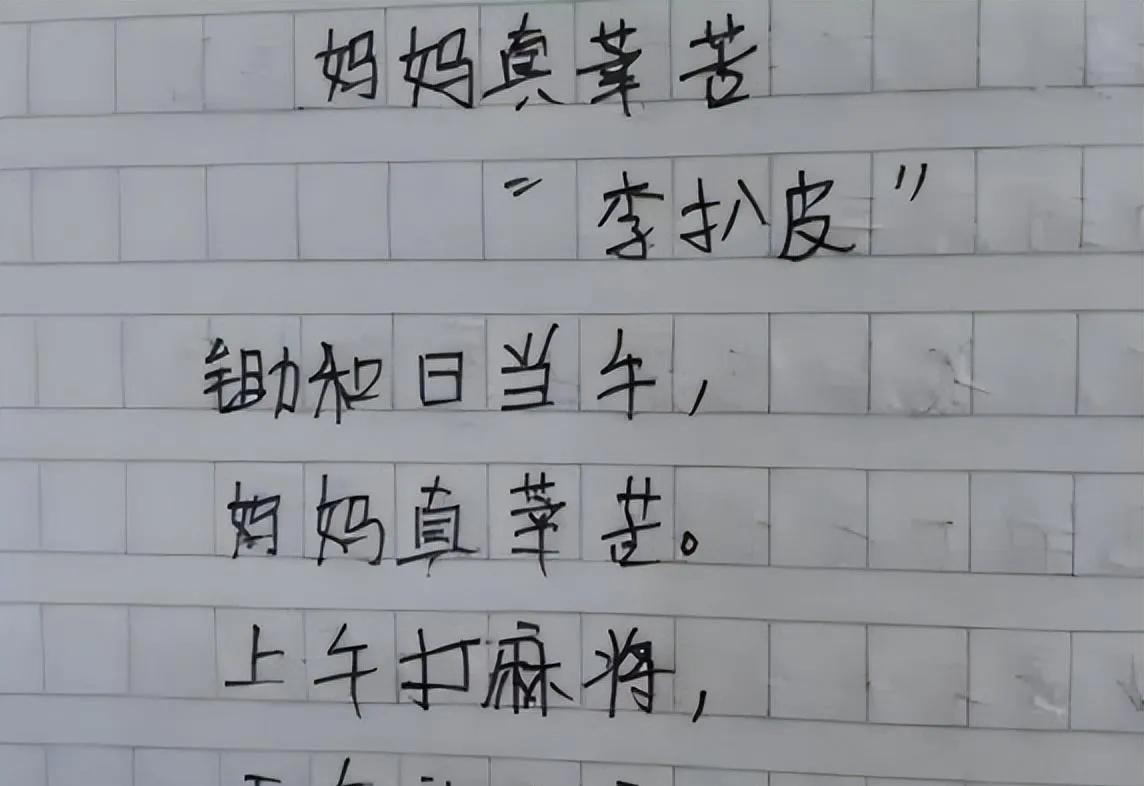 妈妈真莘苦
"李扒皮"
锄和日当午,
妈妈真莘苦。
上午打麻将,